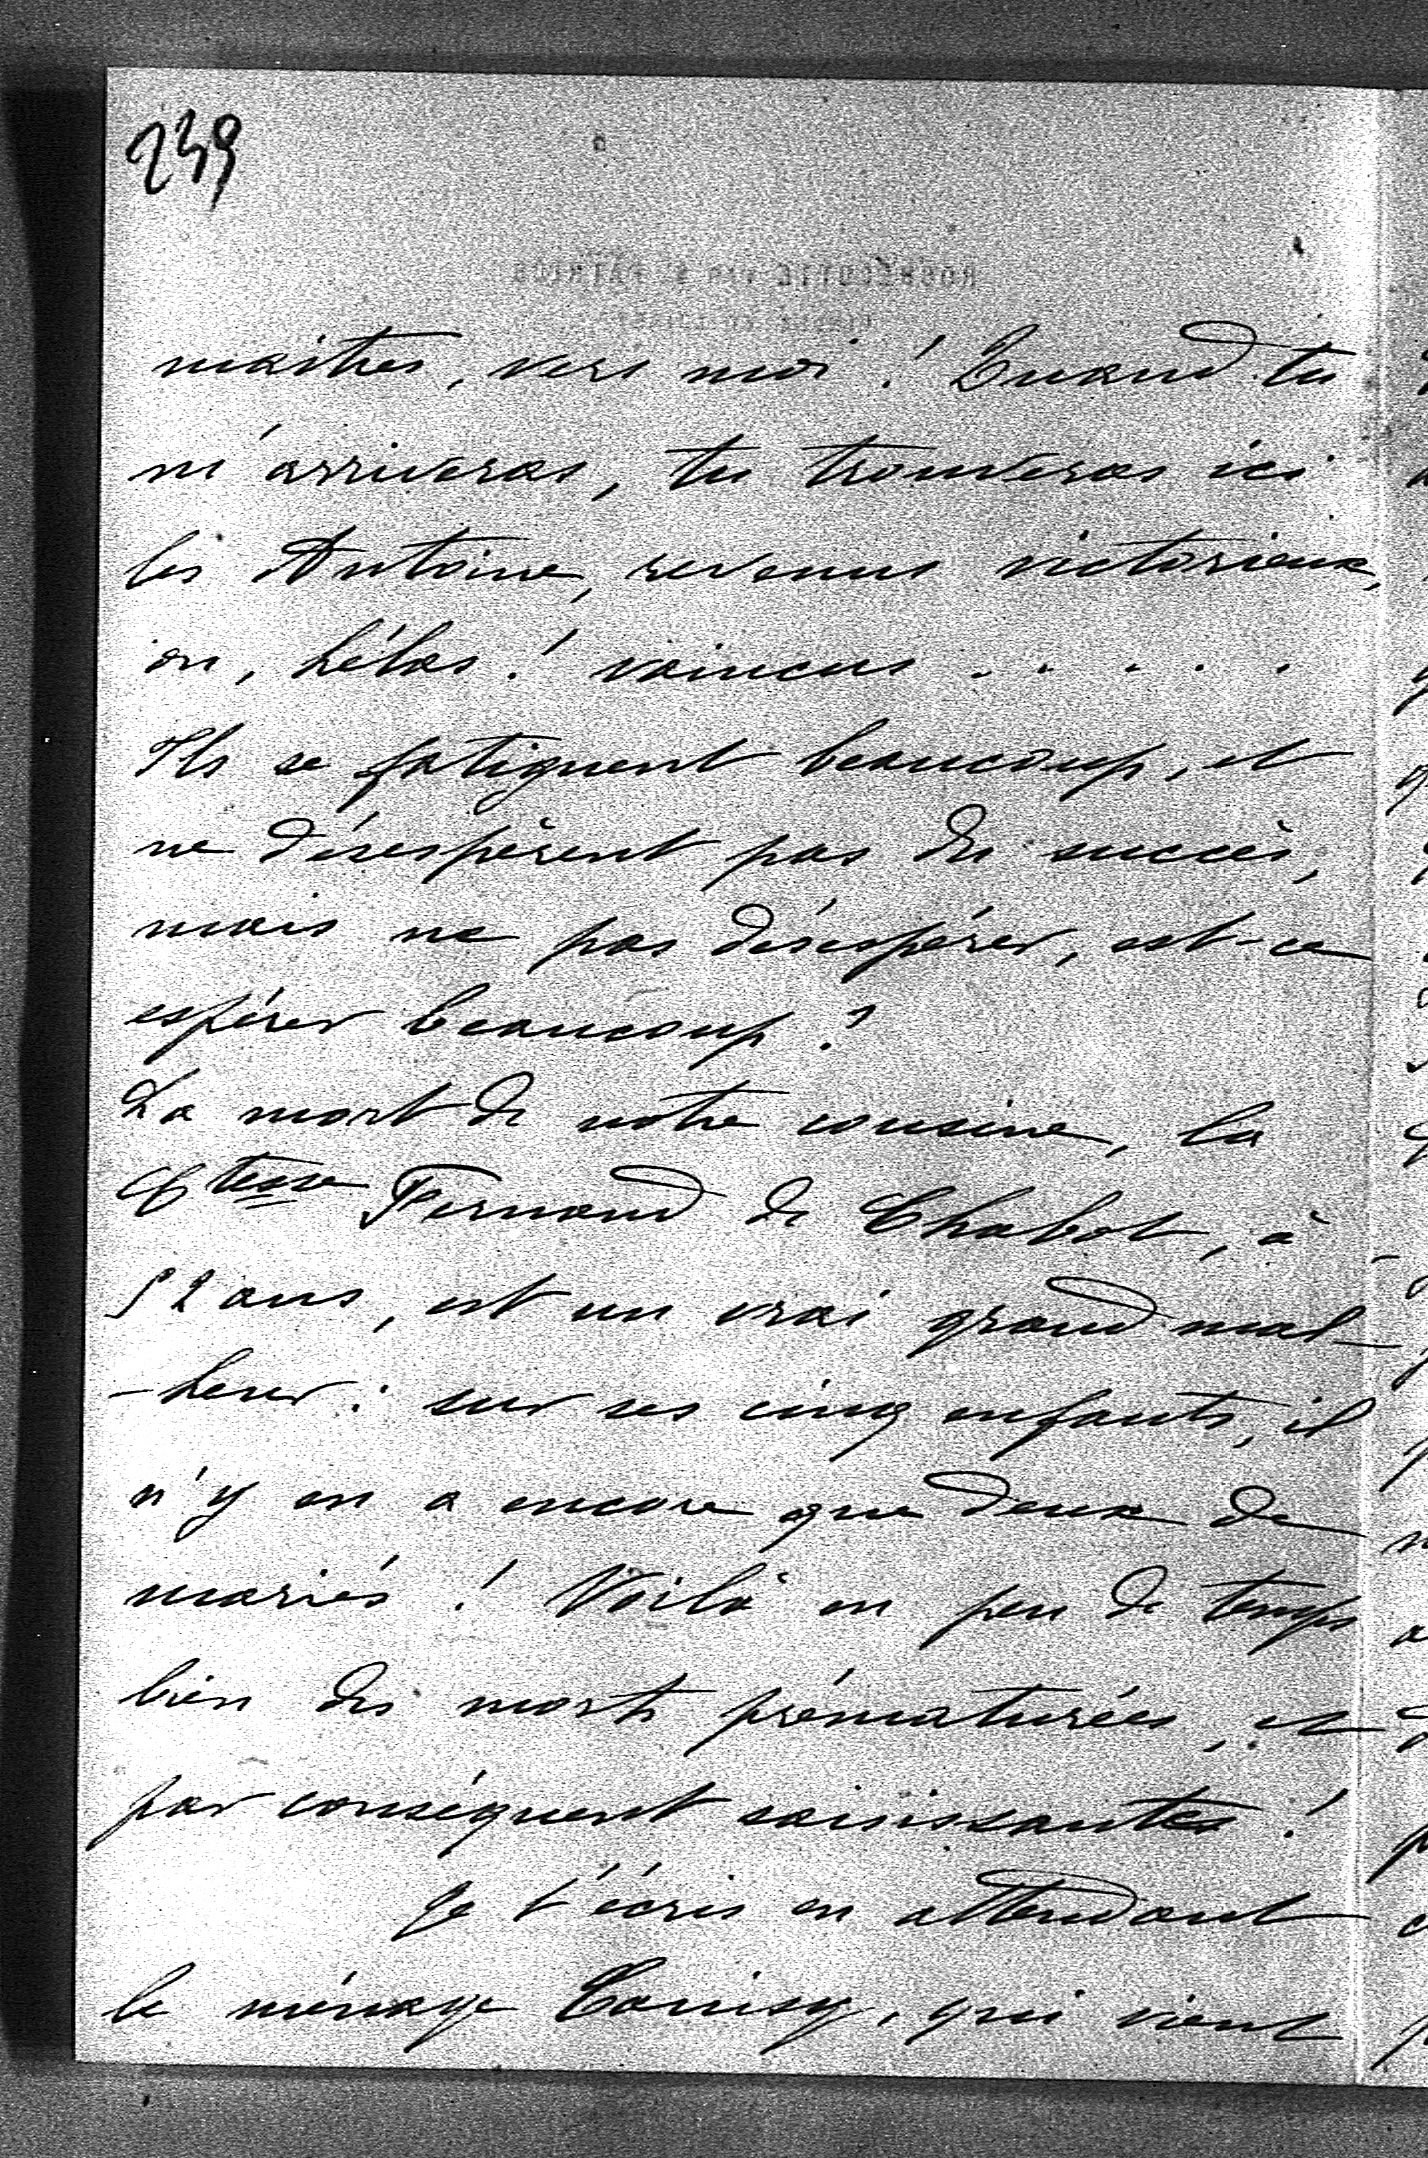 239
maîtres, vers moi ! Quand tu
m'arriveras, tu trouveras ici
les Antoine, revenus victorieux,
ou, hélas ! vaincus . . . . .
Ils se fatiguent beaucoup, et
ne désespèrent pas du succès,
mais ne pas désespérer, est-ce
espérer beaucoup ?
La mort de notre cousine, la
Ctesse Fernand de Chabot, à
52 ans, est un vrai grand mal-
-heur : sur ses cinq enfants, il
n'y en a encore que deux de
mariés ! Voilà en peu de temps
bien des morts prématurées, et
par conséquent saisissantes !
Je t'écris en attendant
le ménage Canisy, qui vient